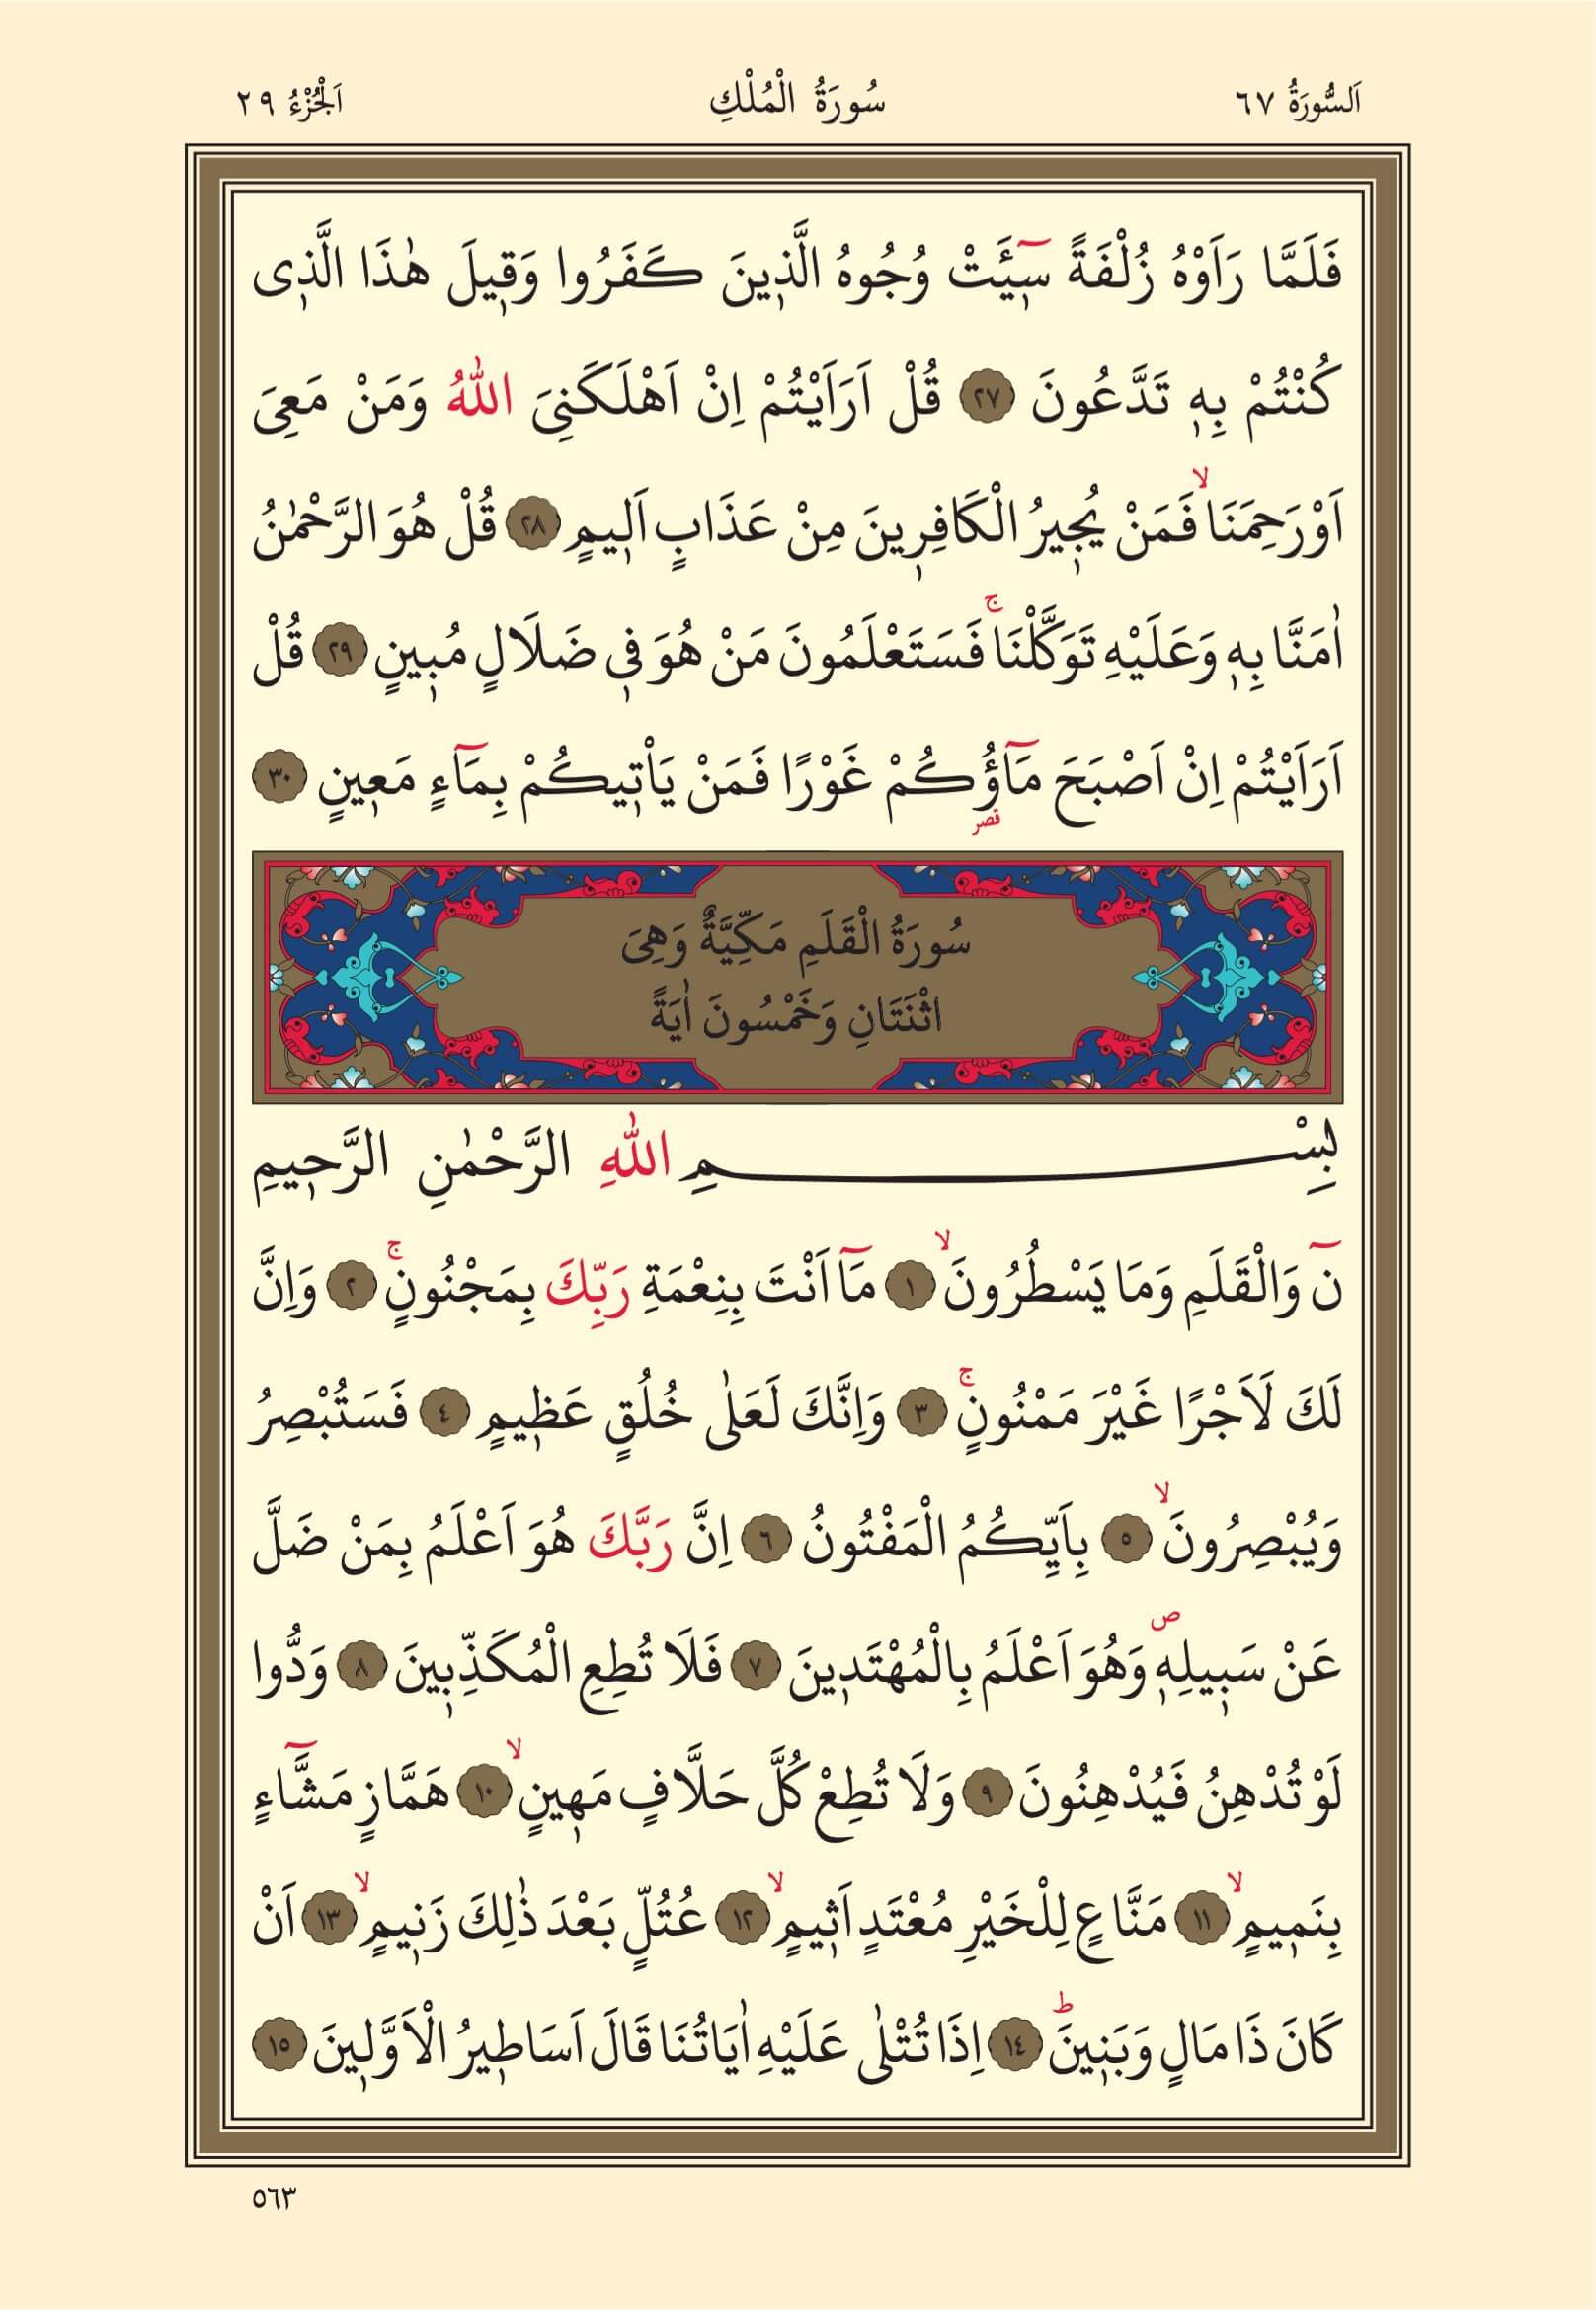 اَلسُّورَةُ ٦٧ سُورَةُ الْمُلْكِ اَلْجُزْءُ ٢٩
فَلَمَّا رَاَوْهُ زُلْفَةً سٓيـَٔتْ وُجُوهُ الَّذ۪ينَ كَفَرُوا وَق۪يلَ هٰذَا الَّذ۪ى
كُنْتُمْ بِه۪ تَدَّعُونَ ٢٧ قُلْ اَرَاَيْتُمْ اِنْ اَهْلَكَنِىَ اللّٰهُ وَمَنْ مَعِىَ
اَوْ رَحِمَنَاۙ فَمَنْ يُج۪يرُ الْكَافِر۪ينَ مِنْ عَذَابٍ اَل۪يمٍ ٢٨ قُلْ هُوَ الرَّحْمٰنُ
اٰمَنَّا بِه۪ وَعَلَيْهِ تَوَكَّلْنَاۚ فَسَتَعْلَمُونَ مَنْ هُوَ ف۪ى ضَلَالٍ مُب۪ينٍ ٢٩ قُلْ
اَرَاَيْتُمْ اِنْ اَصْبَحَ مَٓاؤُكُمْ غَوْرًا فَمَنْ يَاْت۪يكُمْ بِمَٓاءٍ مَع۪ينٍ ٣٠
قصر
سُورَةُ الْقَلَمِ مَكِّيَّةٌ وَهِىَ
اثْنَتَانِ وَخَمْسُونَ اٰيَةً
بِسْمِ اللّٰهِ الرَّحْمٰنِ الرَّح۪يمِ
نٓ وَالْقَلَمِ وَمَا يَسْطُرُونَۙ ١ مَٓا اَنْتَ بِنِعْمَةِ رَبِّكَ بِمَجْنُونٍۚ ٢ وَاِنَّ
لَكَ لَاَجْرًا غَيْرَ مَمْنُونٍۚ ٣ وَاِنَّكَ لَعَلٰى خُلُقٍ عَظ۪يمٍ ٤ فَسَتُبْصِرُ
وَيُبْصِرُونَۙ ٥ بِاَيِّكُمُ الْمَفْتُونُ ٦ اِنَّ رَبَّكَ هُوَ اَعْلَمُ بِمَنْ ضَلَّ
عَنْ سَب۪يلِه۪ۖ وَهُوَ اَعْلَمُ بِالْمُهْتَد۪ينَ ٧ فَلَا تُطِعِ الْمُكَذِّب۪ينَ ٨ وَدُّوا
لَوْ تُدْهِنُ فَيُدْهِنُونَ ٩ وَلَا تُطِعْ كُلَّ حَلَّافٍ مَه۪ينٍۙ ١٠ هَمَّازٍ مَشَّٓاءٍ
بِنَم۪يمٍۙ ١١ مَنَّاعٍ لِلْخَيْرِ مُعْتَدٍ اَث۪يمٍۙ ١٢ عُتُلٍّ بَعْدَ ذٰلِكَ زَن۪يمٍۙ ١٣ اَنْ
كَانَ ذَا مَالٍ وَبَن۪ينَۜ ١٤ اِذَا تُتْلٰى عَلَيْهِ اٰيَاتُنَا قَالَ اَسَاط۪يرُ الْاَوَّل۪ينَ ١٥
٥٦٣